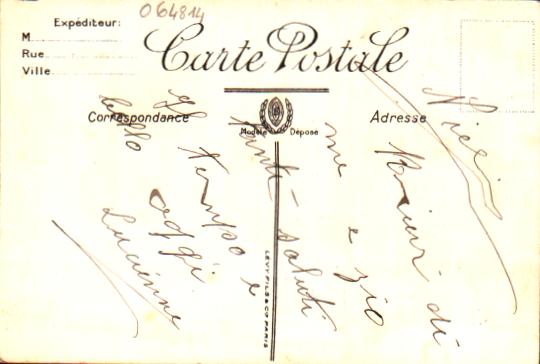 064814
Expéditeur:
M
Rue
Ville
Carte Postale
Correspondance
Adresse
Modèle Déposé
LEVY FILS & CO. PARIS
di
me e zio
tanti saluti
Il tempo e
bello oggi
Lucienne